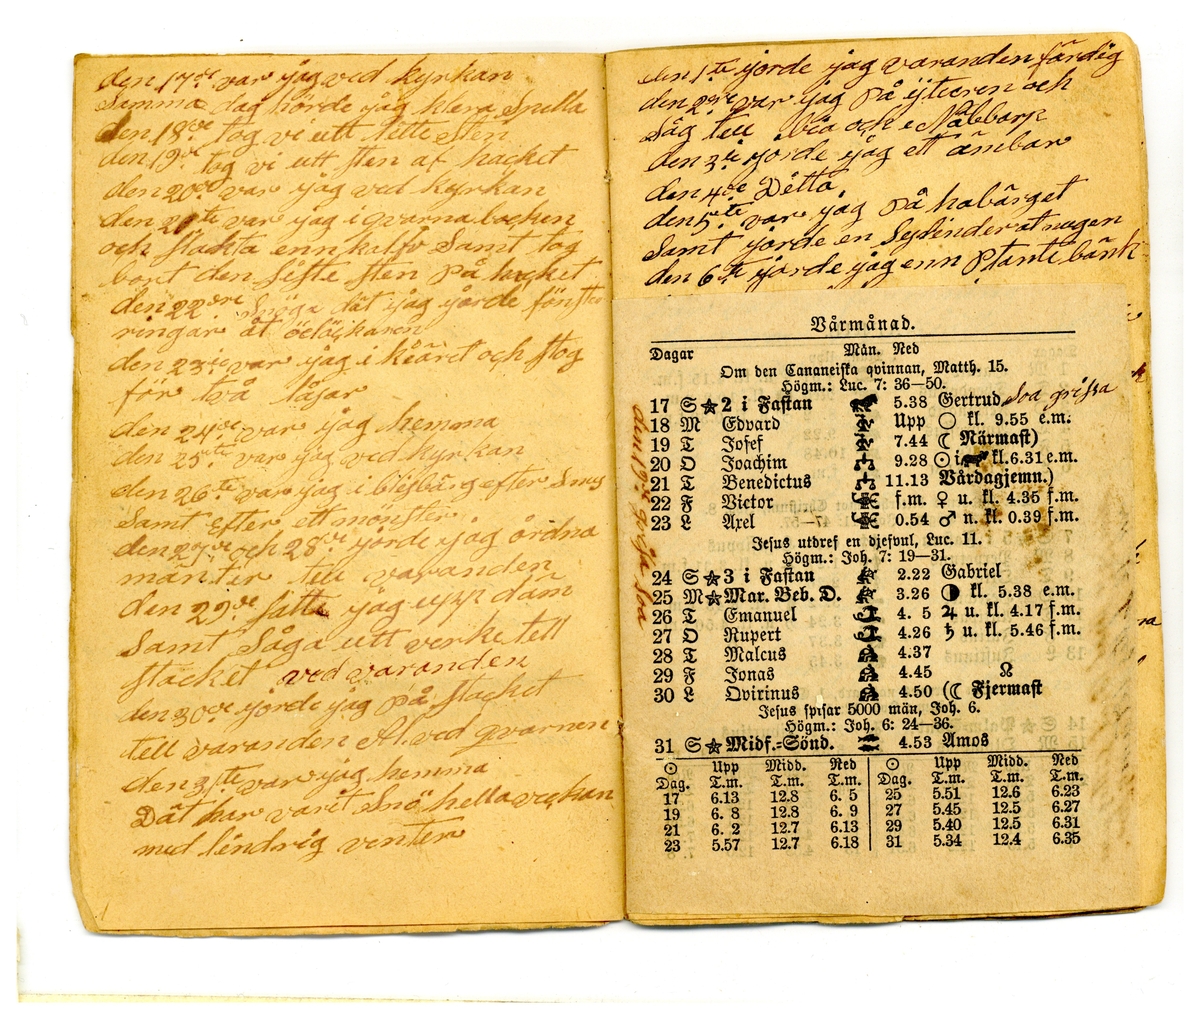 den 17de var jag ved kyrkan
Samma dag hörde jag klera Spella
den 18de tog vi utt lette Sten
den 19de tog vi utt sten af hacket
den 20de var jag ved kyrkan
den 21te var jag i qvarna backen
och släkta enn kalfv Samt tog
bort den siste sten på hacket
den 22dre Snöga dät jag jorde fönster
ringar åt
den 23die var jag i kiäret och slog
för två låjar
den 24de var jag hemma
den 25te var jag ved kyrkan
den 26te var jag i blejbärg efter Smes
Samt efter ett mönster
den 27de och 28de jorde jag ordna
manter till varanden
den 29de satte jag upp däm
Samt Såga utt verke tell
stacket ved varanden
den 30de jorde jag på stacket
tell varanden Al. ved qvarnen
den 31te var jag hemma
Dät har varet Snö hella veckan
med lendrig venter
den 1te jorde jag varanden färdig
den 2dre var jag på ytteren och
Såg till bia och i Nälebarp
den 3die jorde jag ett ämbar
den 4de Détto
den 5te var jag på habärget
Samt jorde en Sylender åt
den 6te jorde jag enn Plante bänk
Vårmånad.
Dagar Mån. Ned
Om den Cananeiska qvinnan, Matth. 15.
Högm.: Luc. 7: 36—50.
17 S ☆ 2 i Fastan 5.38 Gertrud Soa grissa
18 M Edvard Upp ○ kl. 9.55 e.m.
19 T Josef 7.44 ☾ Närmast)
20 O Joachim 9.28 ☉ i kl. 6.31 e.m.
21 T Benedictus 11.13 Vårdagjemn.)
22 F Victor f.m. ♀ u. kl. 4.35 f.m.
23 L Axel 0.54 ♂ n. kl. 0.39 f.m.
Jesus utdref en djefvul, Luc. 11.
Högm.: Joh. 7: 19—31.
24 S ☆ 3 i Fastan 2.22 Gabriel
25 M ☆ Mar. Beb. D. 3.26 ◑ kl. 5.38 e.m.
26 T Emanuel 4. 5 ♃ u. kl. 4.17 f.m.
27 O Rupert 4.26 ♄ u. kl. 5.46 f.m.
28 T Malcus 4.37
29 F Jonas 4.45 ☊
30 L Qvirinus 4.50 (☾ Fjermast
Jesus spisar 5000 män, Joh. 6.
Högm.: Joh. 6: 24—36.
31 S ☆ Midf.=Sönd. 4.53 Amos
☉ Upp Midd. Ned ☉ Upp Midd. Ned
Dag. T.m. T.m. T.m. Dag. T.m. T.m. T.m.
17 6.13 12.8 6. 5 25 5.51 12.6 6.23
19 6. 8 12.8 6. 9 27 5.45 12.5 6.27
21 6. 2 12.7 6.13 29 5.40 12.5 6.31
23 5.57 12.7 6.18 31 5.34 12.4 6.35